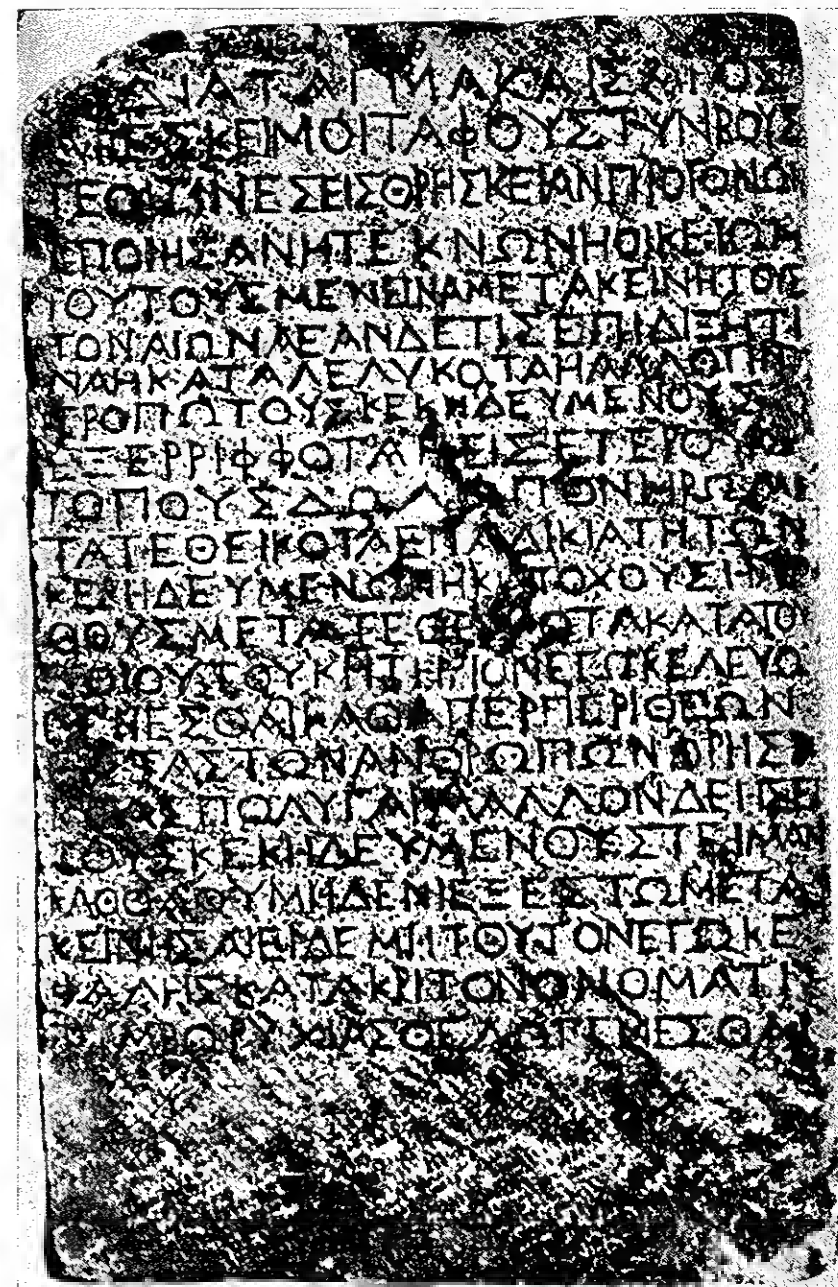 ΔΙΑΤΑΓΜΑΚΑΙΣΑΡΟΣ
ΑΡΕΣΚΕΙΜΟΙΤΑΦΟΥΣΤΥΝΒΟΥΣ
ΤΕΟΙΤΙΝΕΣΕΙΣΘΡΗΣΚΕΙΑΝΠΡΟΓΟΝΩΝ
ΕΠΟΙΗΣΑΝΗΤΕΚΝΩΝΗΟΙΚΕΙΩΝ
ΤΟΥΤΟΥΣΜΕΝΕΙΝΑΜΕΤΑΚΕΙΝΗΤΟΥΣ
ΤΟΝΑΙΩΝΑΕΑΝΔΕΤΙΣΕΠΙΔΙΞΗΤΙ
ΝΑΗΚΑΤΑΛΕΛΥΚΟΤΑΗΑΛΛΩΤΙΝΙ
ΤΡΟΠΩΤΟΥΣΚΕΚΗΔΕΥΜΕΝΟΥΣ
ΕΞΕΡΡΙΦΦΟΤΑΗΕΙΣΕΤΕΡΟΥΣ
ΤΟΠΟΥΣΔΩΛΩΠΟΝΗΡΩΜΕ
ΤΑΤΕΘΕΙΚΟΤΑΕΠΑΔΙΚΙΑΤΗΤΩΝ
ΚΕΚΗΔΕΥΜΕΝΩΝΗΚΑΤΟΧΟΥΣΗΛΙ
ΘΟΥΣΜΕΤΑΤΕΘΕΙΚΟΤΑΚΑΤΑΤΟΥ
ΤΟΙΟΥΤΟΥΚΡΙΤΗΡΙΟΝΕΓΩΚΕΛΕΥΩ
ΓΕΝΕΣΘΑΙΚΑΘΑΠΕΡΠΕΡΙΘΕΩΝ
ΕΣΤΑΣΤΩΝΑΝΘΡΩΠΩΝΘΡΗΣ
ΚΙΑΣΠΟΛΥΓΑΡΜΑΛΛΟΝΔΕΗΣΕΙ
ΤΟΥΣΚΕΚΗΔΕΥΜΕΝΟΥΣΤΕΙΜΑΝ
ΚΑΘΟΛΟΥΜΗΔΕΝΙΕΞΕΣΤΩΜΕΤΑ
ΚΕΙΝΗΣΑΙΕΙΔΕΜΗΤΟΥΤΟΝΕΓΩΚΕ
ΦΑΛΗΣΚΑΤΑΚΡΙΤΟΝΟΝΟΜΑΤΙ
ΤΥΜΒΩΡΥΧΙΑΣΘΕΛΩΓΕΝΕΣΘΑΙ